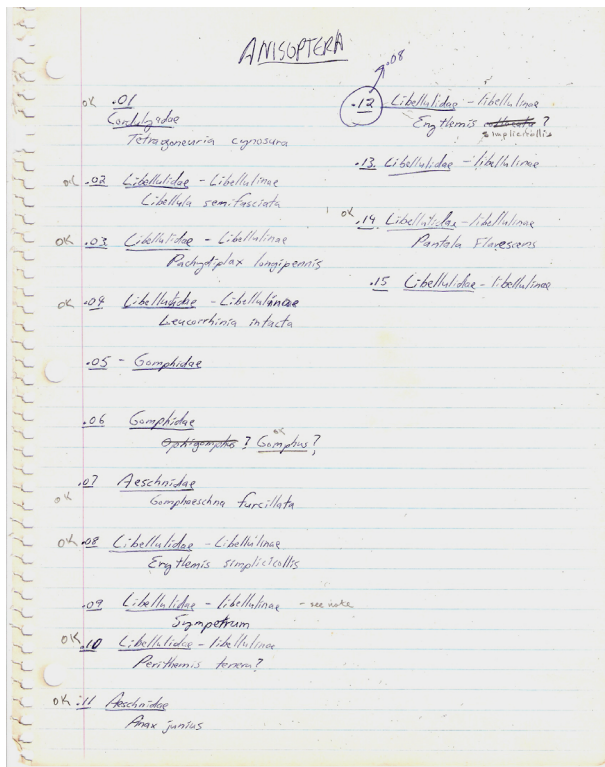 ANISOPTERA
OK .01
Cordulgadae
Tetragoneuria cynosura
ok .02 Libellulidae - Libellulinae
Libellula semifasciata
OK .03 Libellulidae - Libellulinae
Pachydiplax longipennis
OK .04 Libellulidae - Libellulinae
Leucorrhinia intacta
.05 - Gomphidae
.06 Gomphidae
ok
Ophigomphus ? Gomphus?
.07 Aeschnidae
OK Gomphaeschna furcillata
OK .08 Libellulidae - Libellulinae
Erythemis simplicicallis
.09 Libellulidae - libellulinae - see note
Sympetrum
OK .10 Libellulidae - libellulinae
Perithemis tenera?
OK .11 Aeschnidae
Anax junius
.08
.12 Libellulidae - libellulinae
Erythemis ?
simplicicallis
.13. Libellulidae - libellulinae
OK .14 Libellulidae - libellulinae
Pantala flavescens
.15 Libellulidae - libellulinae